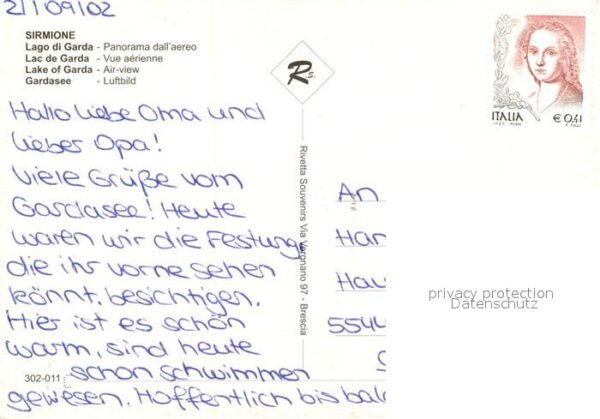 21/09/02
SIRMIONE
Lago di Garda - Panorama dall'aereo
Lac de Garda - Vue aérienne
Lake of Garda - Air-view
Gardasee - Luftbild
Rs.
ITALIA
€ 0,41
Hallo liebe Oma und
lieber Opa!
Viele Grüße vom
Gardasee! Heute
waren wir die Festung,
die ihr vorne sehen
könnt, besichtigen.
Hier ist es schön
warm, sind heute
schon schwimmen
gewesen. Hoffentlich bis bald
302-011
Rivetta Souvenirs Via Veronano 97 - Brescia
An
Han
Hau
5544
privacy protection
Datenschutz